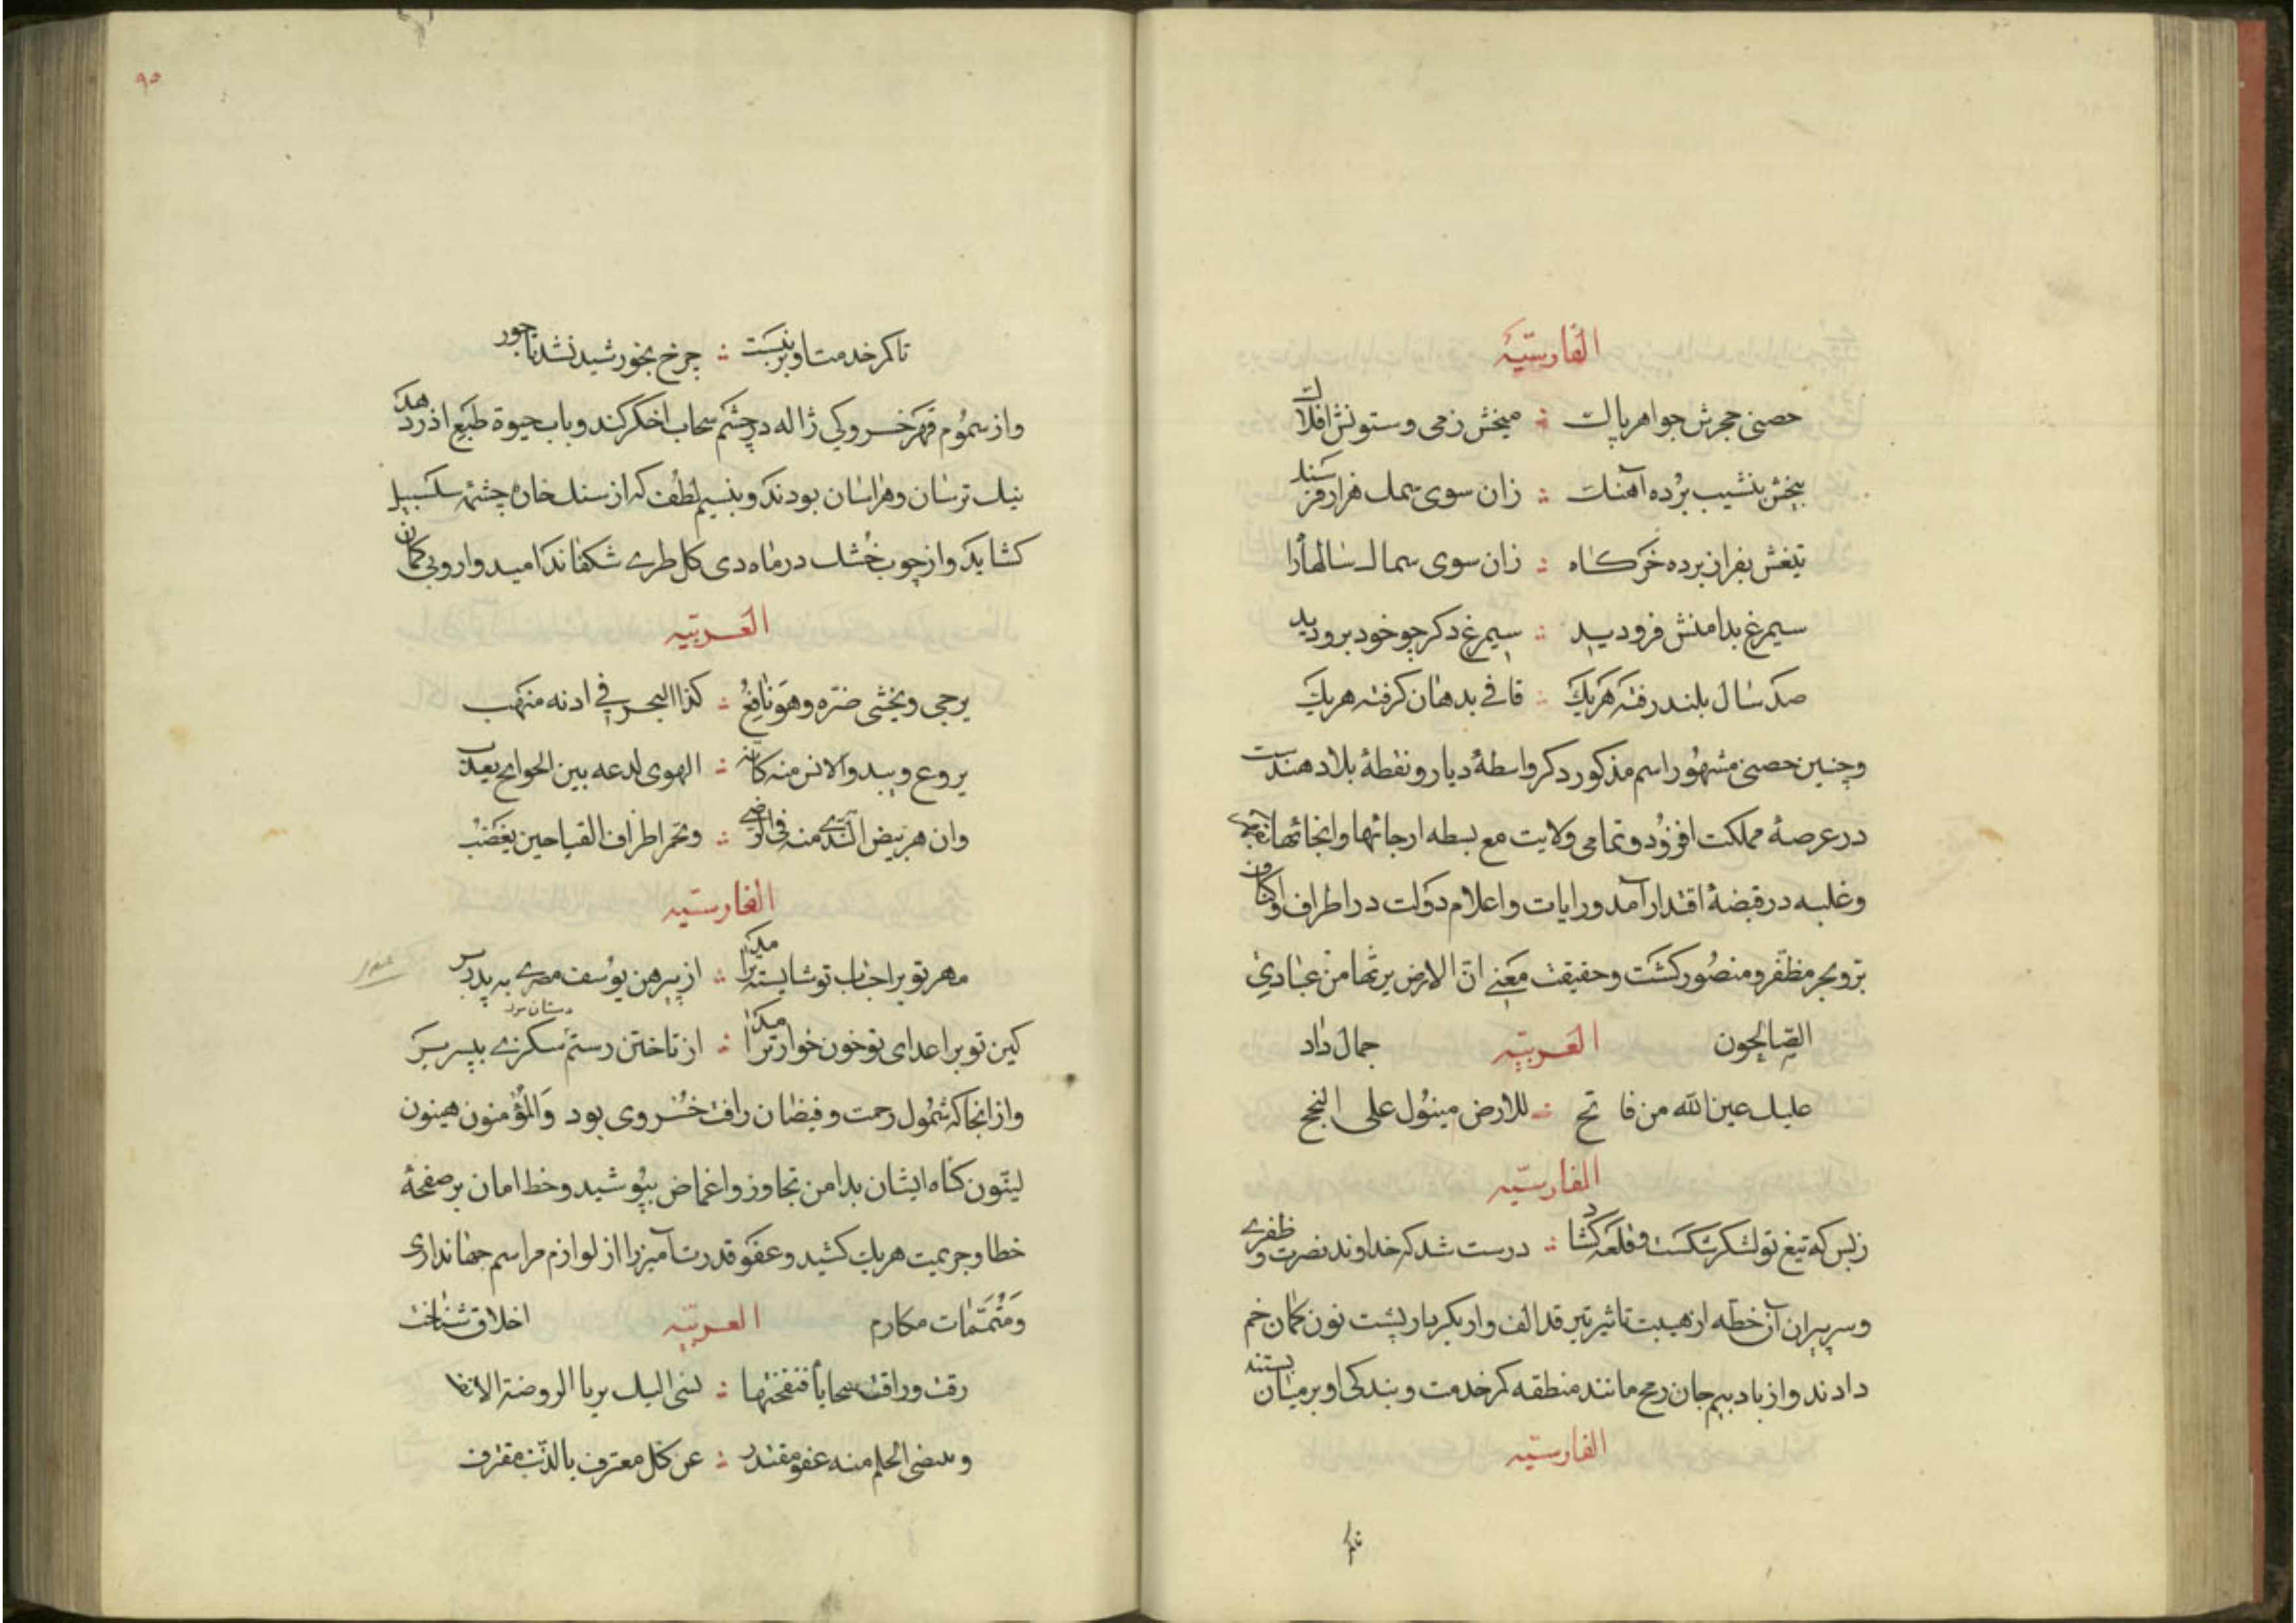 الفارسیّة
حصنی حجرش جواهر پاک ؞ میخش زمی و ستونش افلاک
بیخش بنشیب برده آهنک ؞ زان سوی سمک هزار فرسنک
تیغش بفراز برده خرکاه ؞ زان سوی سما
سیمرغ بدامنش فرو دید ؞ سیمرغ دکر چو خود برو دید
صد سال بلند رفته هریک ؞ قافی بدهان کرفته هریک
وچنین حصنی مشهور اسم مذکور دکر واسطهٔ دیار و نقطهٔ بلاد هندست
در عرصهٔ مملکت افزود و تمامی ولایت مع بسطه ارجائها وانحائها
وغلبه در قبضهٔ اقتدار آمد ورایات واعلام دولت در اطراف واکناف
برّ وبحر مظفّر ومنصور کشت وحقیقت معنی انّ الارض یرثها من عبادی
الصّالحون العربیّه جمال داد
علیک عین الله من فاتح ؞ للارض میئول علی النجح
الفارسیّه
زبس که تیغ تو لشکر شکست و قلعه کشاد ؞ درست شد که خداوند نصرت و ظفری
وسریران آن خطّه از هیبت تاثیر تیر قد الف وار یکبار پشت نون کمان خم
دادند واز باد بیم جان رمح مانند منطقه کمر خدمت و بندکی او بر میان بستند
الفارسیّه
تاکمر
۹۵
تا کمر خدمت او بر نبست ؞ چرخ بخورشید نشد تاجور
واز سموم قهر خسروی کی ژاله در چشم سحاب اخکر کند وباب حیوة طبع اذر دهد
نیک ترسان وهراسان بودند وبنسیم لطف که از سنک خاره چشمه سلسبیل
کشاید واز چوب خشک در ماه دی کل طری شکفاند امیدوار و بی کمان
العربیّه
یرجی ویخشی ضرّه وهو نافع ؞ کذا البحر فی
یروع ویبدو الانس منه کانه ؞ الهوی لدعه بین الجوانح یعذب
وان هز بیض الندی منه فی الوضی ؞ وتحمر اطراف القنا حین یغضب
الفارسیّه
مهر تو بر احباب تو شایسته تر امد ؞ از پیرهن یوسف مصری به پدر بر
کین تو بر اعدای تو خون خوارتر امد ؞ از تاختن رستم سکزی بپسر بر
واز انجا که شمول رحمت و فیضان رافت خسروی بود والمؤمنون هینون
لیّنون کناه ایشان بدامن تجاوز واغماض بپوشید وخط امان بر صفحهٔ
خطا وجریمت هریک کشید وعفو قدرت آمیز را از لوازم مراسم جهانداری
ومتمّمات مکارم العربیّه اخلاق شناخت
رقت وراقت سجایا فنفحتها ؞ الیک بریا الروضة الانفا
الحلم منه عفو مقتدر ؞ عن کل معترف بالذنب مقترف